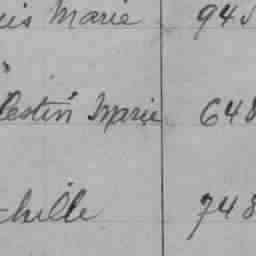 uis Marie 945
"
lestin Marie 648
chille 748